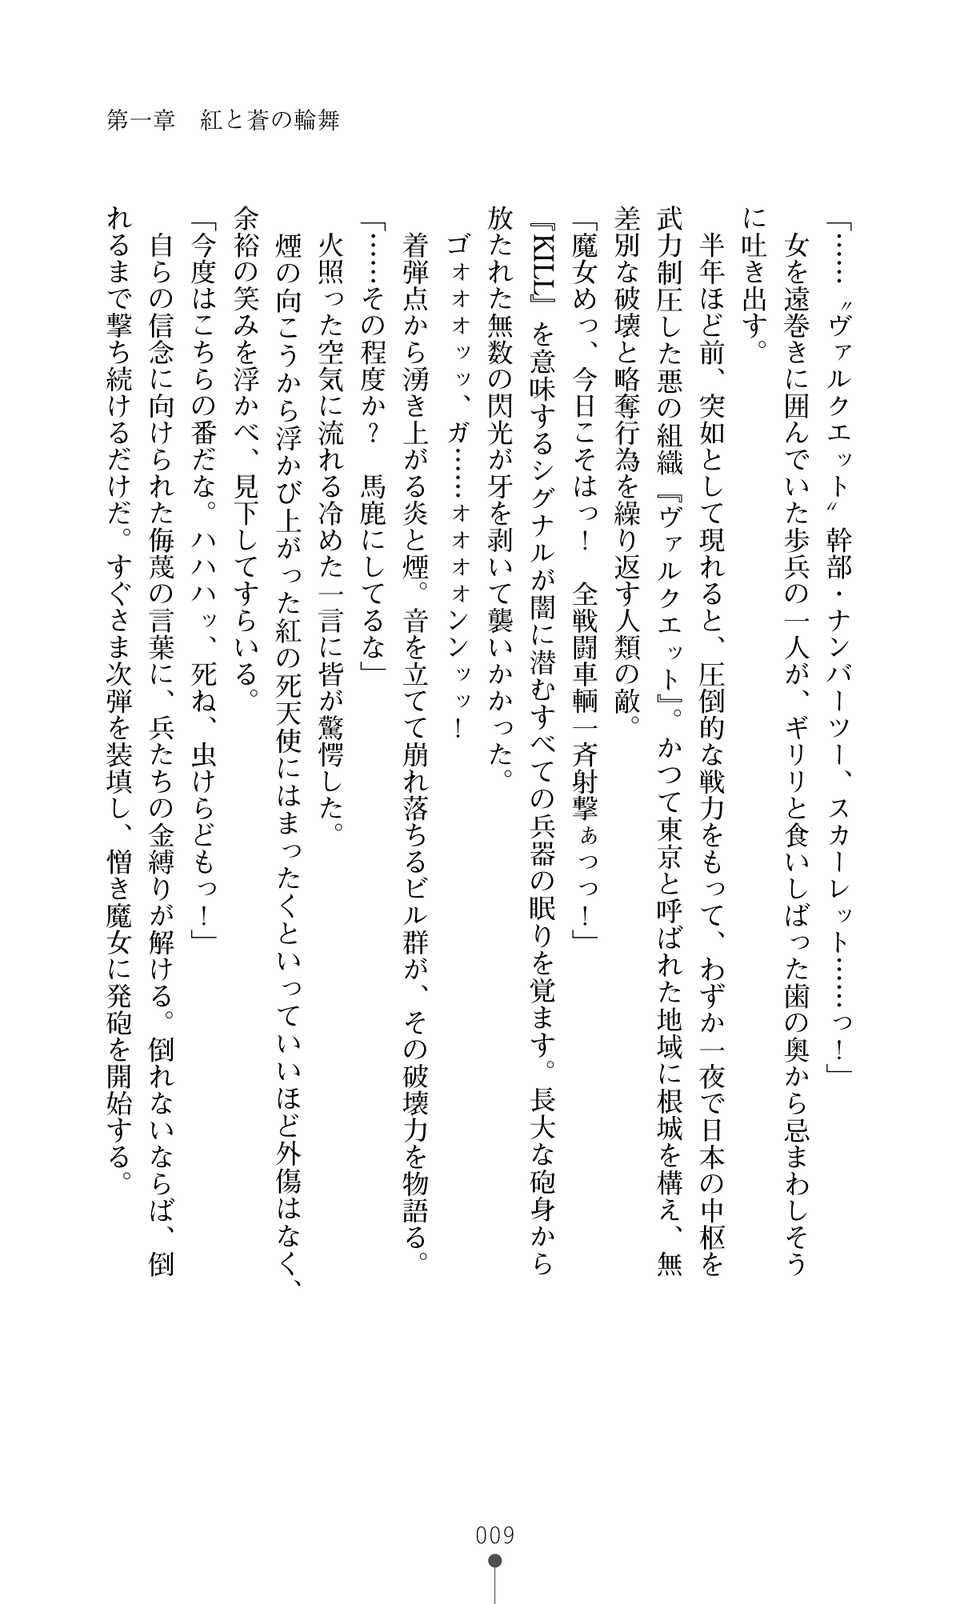 第一章　紅と蒼の輪舞
「……〝ヴァルクエット〟幹部・ナンバーツー、スカーレット……っ！」
　女を遠巻きに囲んでいた歩兵の一人が、ギリリと食いしばった歯の奥から忌まわしそう
に吐き出す。
　半年ほど前、突如として現れると、圧倒的な戦力をもって、わずか一夜で日本の中枢を
武力制圧した悪の組織『ヴァルクエット』。かつて東京と呼ばれた地域に根城を構え、無
差別な破壊と略奪行為を繰り返す人類の敵。
「魔女めっ、今日こそはっ！　全戦闘車輌一斉射撃ぁっっ！」
『KILL』を意味するシグナルが闇に潜むすべての兵器の眠りを覚ます。長大な砲身から
放たれた無数の閃光が牙を剥いて襲いかかった。
　ゴォォォッッ、ガ……ォォォンンッッ！
　着弾点から湧き上がる炎と煙。音を立てて崩れ落ちるビル群が、その破壊力を物語る。
「……その程度か？　馬鹿にしてるな」
　火照った空気に流れる冷めた一言に皆が驚愕した。
　煙の向こうから浮かび上がった紅の死天使にはまったくといっていいほど外傷はなく、
余裕の笑みを浮かべ、見下してすらいる。
「今度はこちらの番だな。ハハハッ、死ね、虫けらどもっ！」
　自らの信念に向けられた侮蔑の言葉に、兵たちの金縛りが解ける。倒れないならば、倒
れるまで撃ち続けるだけだ。すぐさま次弾を装填し、憎き魔女に発砲を開始する。
009